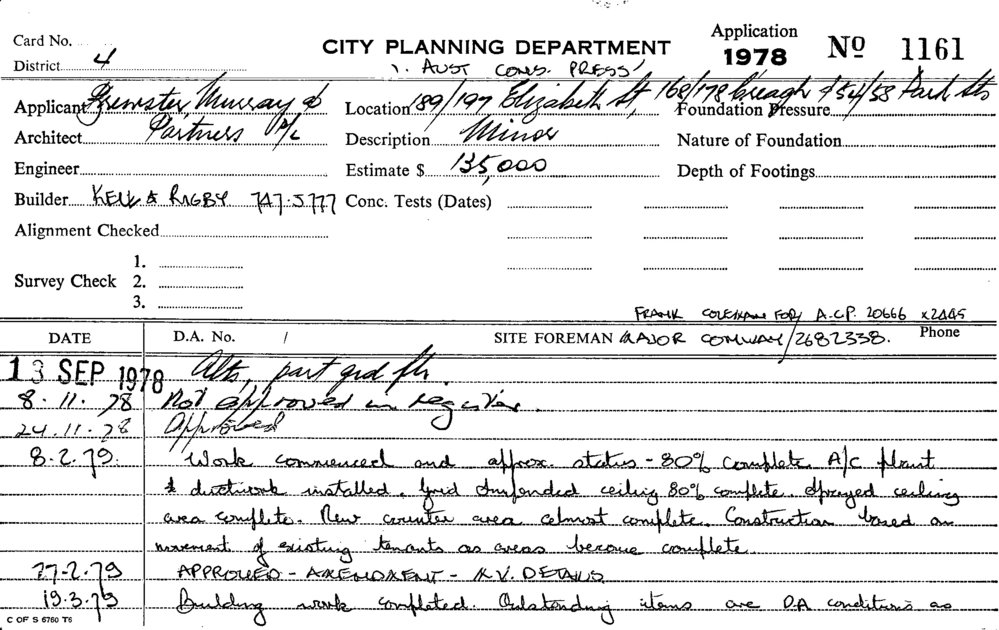 Card No.
District 4
CITY PLANNING DEPARTMENT
Application
1978 Nº 1161
'AUST CONS. PRESS'
Applicant Brewster, Murray &
Location 189/197 Elizabeth St, 168/178 & 54/58 Park Sts
Foundation Pressure
Architect Partners P/L
Description Minor
Nature of Foundation
Engineer
Estimate $ 135,000
Depth of Footings
Builder KELL & RIGBY 747.5777
Conc. Tests (Dates)
Alignment Checked
Survey Check 1.
2.
3.
FRANK COLEMAN FOR A.C.P. 20666 x2445
DATE D.A. No. / SITE FOREMAN MAJOR CONWAY/2682338. Phone
13 SEP 1978 Alts, part grd flr.
8.11.78 Not approved in register.
24.11.78 Approved
8.2.79. Work commenced and approx. status - 80% complete. A/C plant
& ductwork installed. Grid suspended ceiling 80% complete. Sprayed ceiling
area complete. New counter area almost complete. Construction based on
movement of existing tenants as areas become complete.
27-2.79 APPROVED - AMENDMENT - DETAILS
19.3.79 Building work completed. Outstanding items are D.A conditions as
C OF S 6760 T6